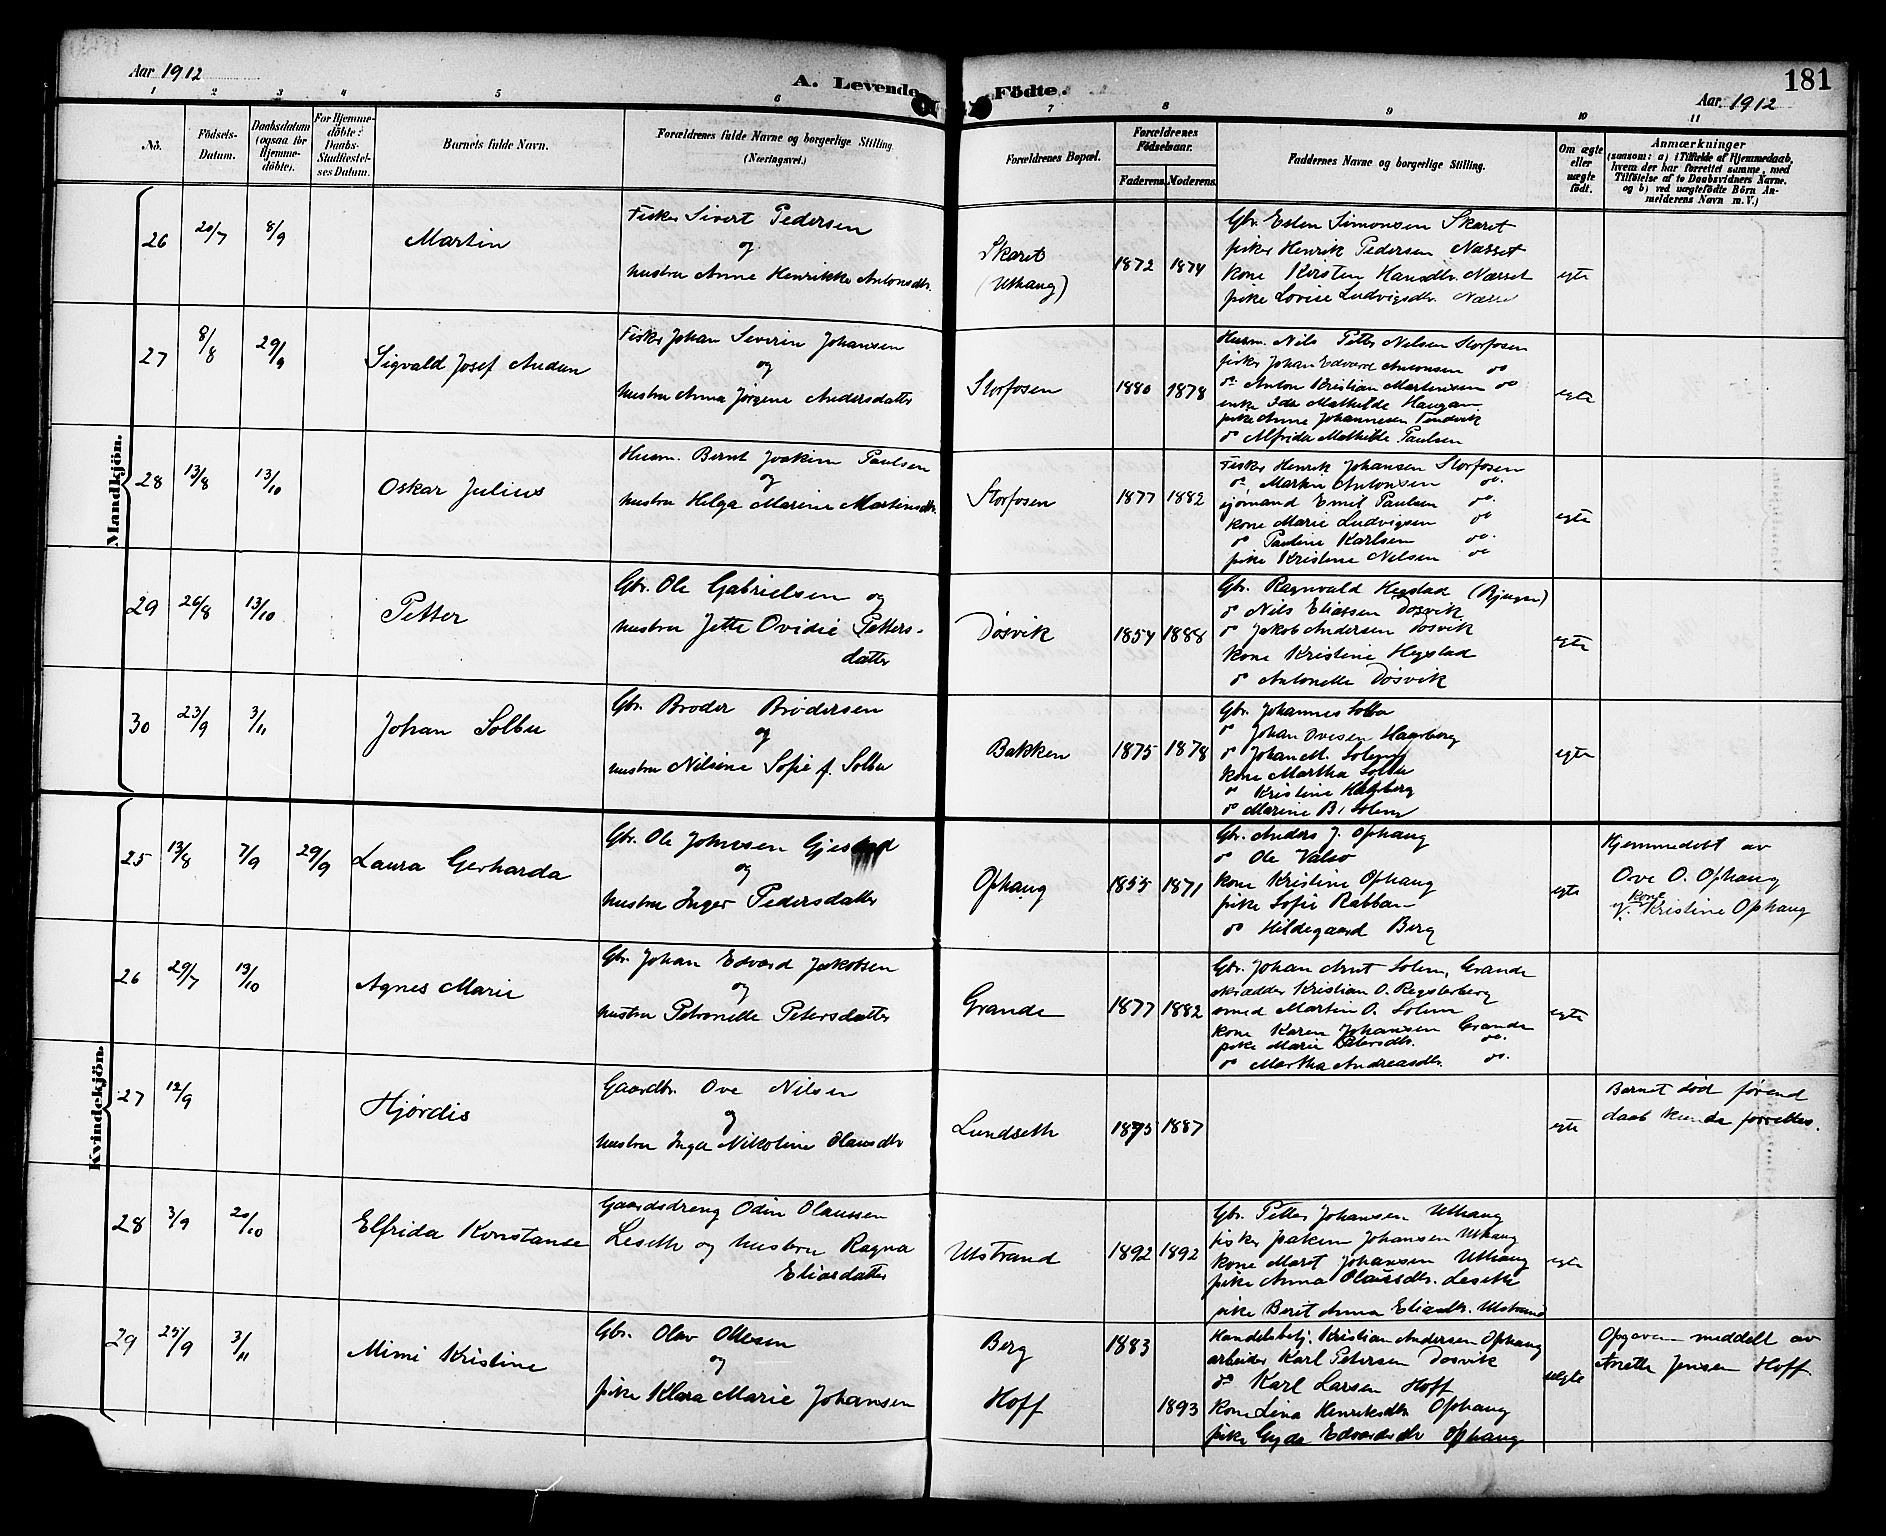 Aar 1912
A. Levende Födte.
181
Aar 1912
1 2 3 4 5 6 7 8 9 10 11
No.
Födsels-Datum.
Daabsdatum (ogsaa for Hjemme-döbte).
For Hjemme-döbte: Daabs-Stadfæstel-ses Datum.
Barnets fulde Navn.
Forældrenes fulde Navne og borgerlige Stilling.
(Næringsvei.)
Forældrenes Bopæl.
Forældrenes Födselsaar.
Faderens. Moderens.
Faddernes Navne og borgerlige Stilling.
Om ægte eller uægte födt.
Anmærkninger
(saasom: a) i Tilfælde af Hjemmedaab, hvem der har forrettet samme, med Tilföielse af to Daabsvidners Navne, og b) ved uægtefödte Börn An-melderens Navn m. V.)
Mandkjön.
26 20/7 8/9 Martin
Fisker Sivert Pedersen
og
hustru Anne Henrikke Antonsdtr.
Skaret
(Uthaug)
1872 1874
Gbr. Esten Simonsen Skaret
fisker Henrik Pedersen Næsset
kone Kirsten Hansdtr. Næsset
pike Lovise Ludvigsdtr. Næsse
egte
27 8/8 29/9 Sigvald Josef Audun
Fisker Johan Severin Johansen
og
hustru Anna Jørgine Andersdatter
Storfosen
1880 1878
Husm. Nils Petter Nelsen Storfosen
fisker Johan Edvard Antonsen do
do Anton Kristian Martinsen do
enke Ida Mathilde Haugan
pike Anne Johannesen
do Alfrida Mathilde Paulsen
egte
28 13/8 13/10 Oskar Julius
Husm. Bernt Joakim Paulsen
og
hustru Helga Marine Martinsdtr.
Storfosen
1877 1882
Fisker Henrik Johansen Storfosen
do Martin Antonsen do.
Emil Paulsen do.
kone Marie Ludvigsen do
do Pauline Karlsen do.
pike Kristine Nilsen do
egte
29 26/8 13/10 Petter
Gbr. Ole Gabrielsen og
hustru Jette Ovidie Petters-
datter
Døsvik
1854 1888
Gbr. Ragnvald Hegstad (Bjugn)
do Nils Eliassen Døsvik
do Jakob Andersen Døsvik
kone Kristine Hegstad
do Antonette Døsvik
egte
30 23/9 3/11 Johan Solbu
Gbr. Broder Brodersen
og
hustru Nilsine Sofie f. Solbu
Bakken
1875 1878
Gbr. Johannes Solbu
do Johan Ovesen
do Johan M. Solem
kone Martha Solbu
do Kristine
do Marine B. Solem
egte
Kvindekjön.
25 13/8 7/9 29/9 Laura Gerharda
Gbr. Ole Johnsen
og
hustru Inger Pedersdatter
Ophaug
1855 1871
Gbr. Anders J. Ophaug
do Ole Valsø
kone Kristine Ophaug
pike Sofie Rabben
do Hildegaard Berg
egte
Hjemmedøbt av
Ove O. Ophaug
og kone Kristine Ophaug
26 29/7 13/10 Agnes Marie
Gbr. Johan Edvard Jakobsen
og
hustru Petronelle Petersdatter
Grande
1877 1882
Gbr. Johan Arnt Solem, Grande
skrædder Kristian O.
smed Martin O. Solem
kone Karen Johansen Grande
pike Marie Petersdtr. do.
do Martha Andreasdtr. do.
egte
27 12/9 Hjørdis
Gaardbr. Ove Nilsen
og
hustru Inga Nikoline Olausdtr
Lundseth
1875 1887
egte
Barnet død førend
daab kunde forrettes.
28 3/9 20/10 Elfrida Konstanse
Gaardsdreng Odin Olaussen
Leseth og hustru Ragna
Eliasdatter
Utstrand
1892 1892
Gbr. Petter Johansen Uthaug
fisker Joakim Johansen Uthaug
kone Marit Johansen Uthaug
pike Anna Olausdtr. Leseth
pike Berit Anna Eliasdtr. Utstrand
egte
29 25/9 3/11 Mimi Kristine
Gbr. Olav Ottesen
og
pike Klara Marie Johansen
Berg
Hoff
1883
1893
Handelsbetj. Kristian Andersen Ophaug
arbeider Karl Petersen Døsvik
do Karl Larsen Hoff
kone Lina Henriksdtr Ophaug
pike Gyda Edvardsdtr Ophaug
uegte
Opgaven meddelt av
Anette Jensen Hoff